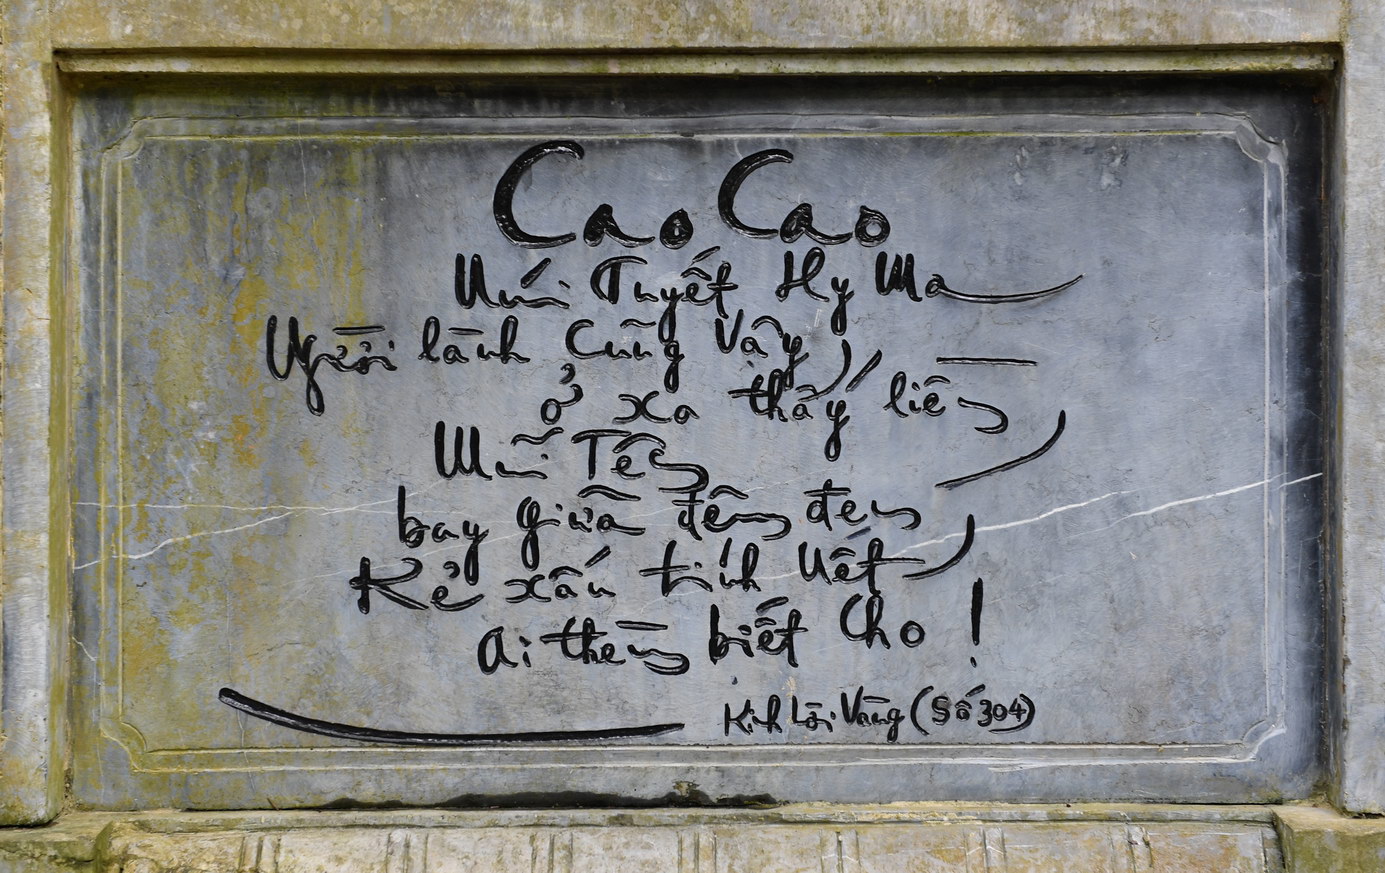 Cao Cao
Núi Tuyết Hy Ma
Người lành Cũng Vậy
ở xa thấy liền
Mũi Tên
bay giữa đêm đen
Kẻ xấu tính Nết
ai thèm biết Cho !
Kinh Lời Vàng (Số 304)